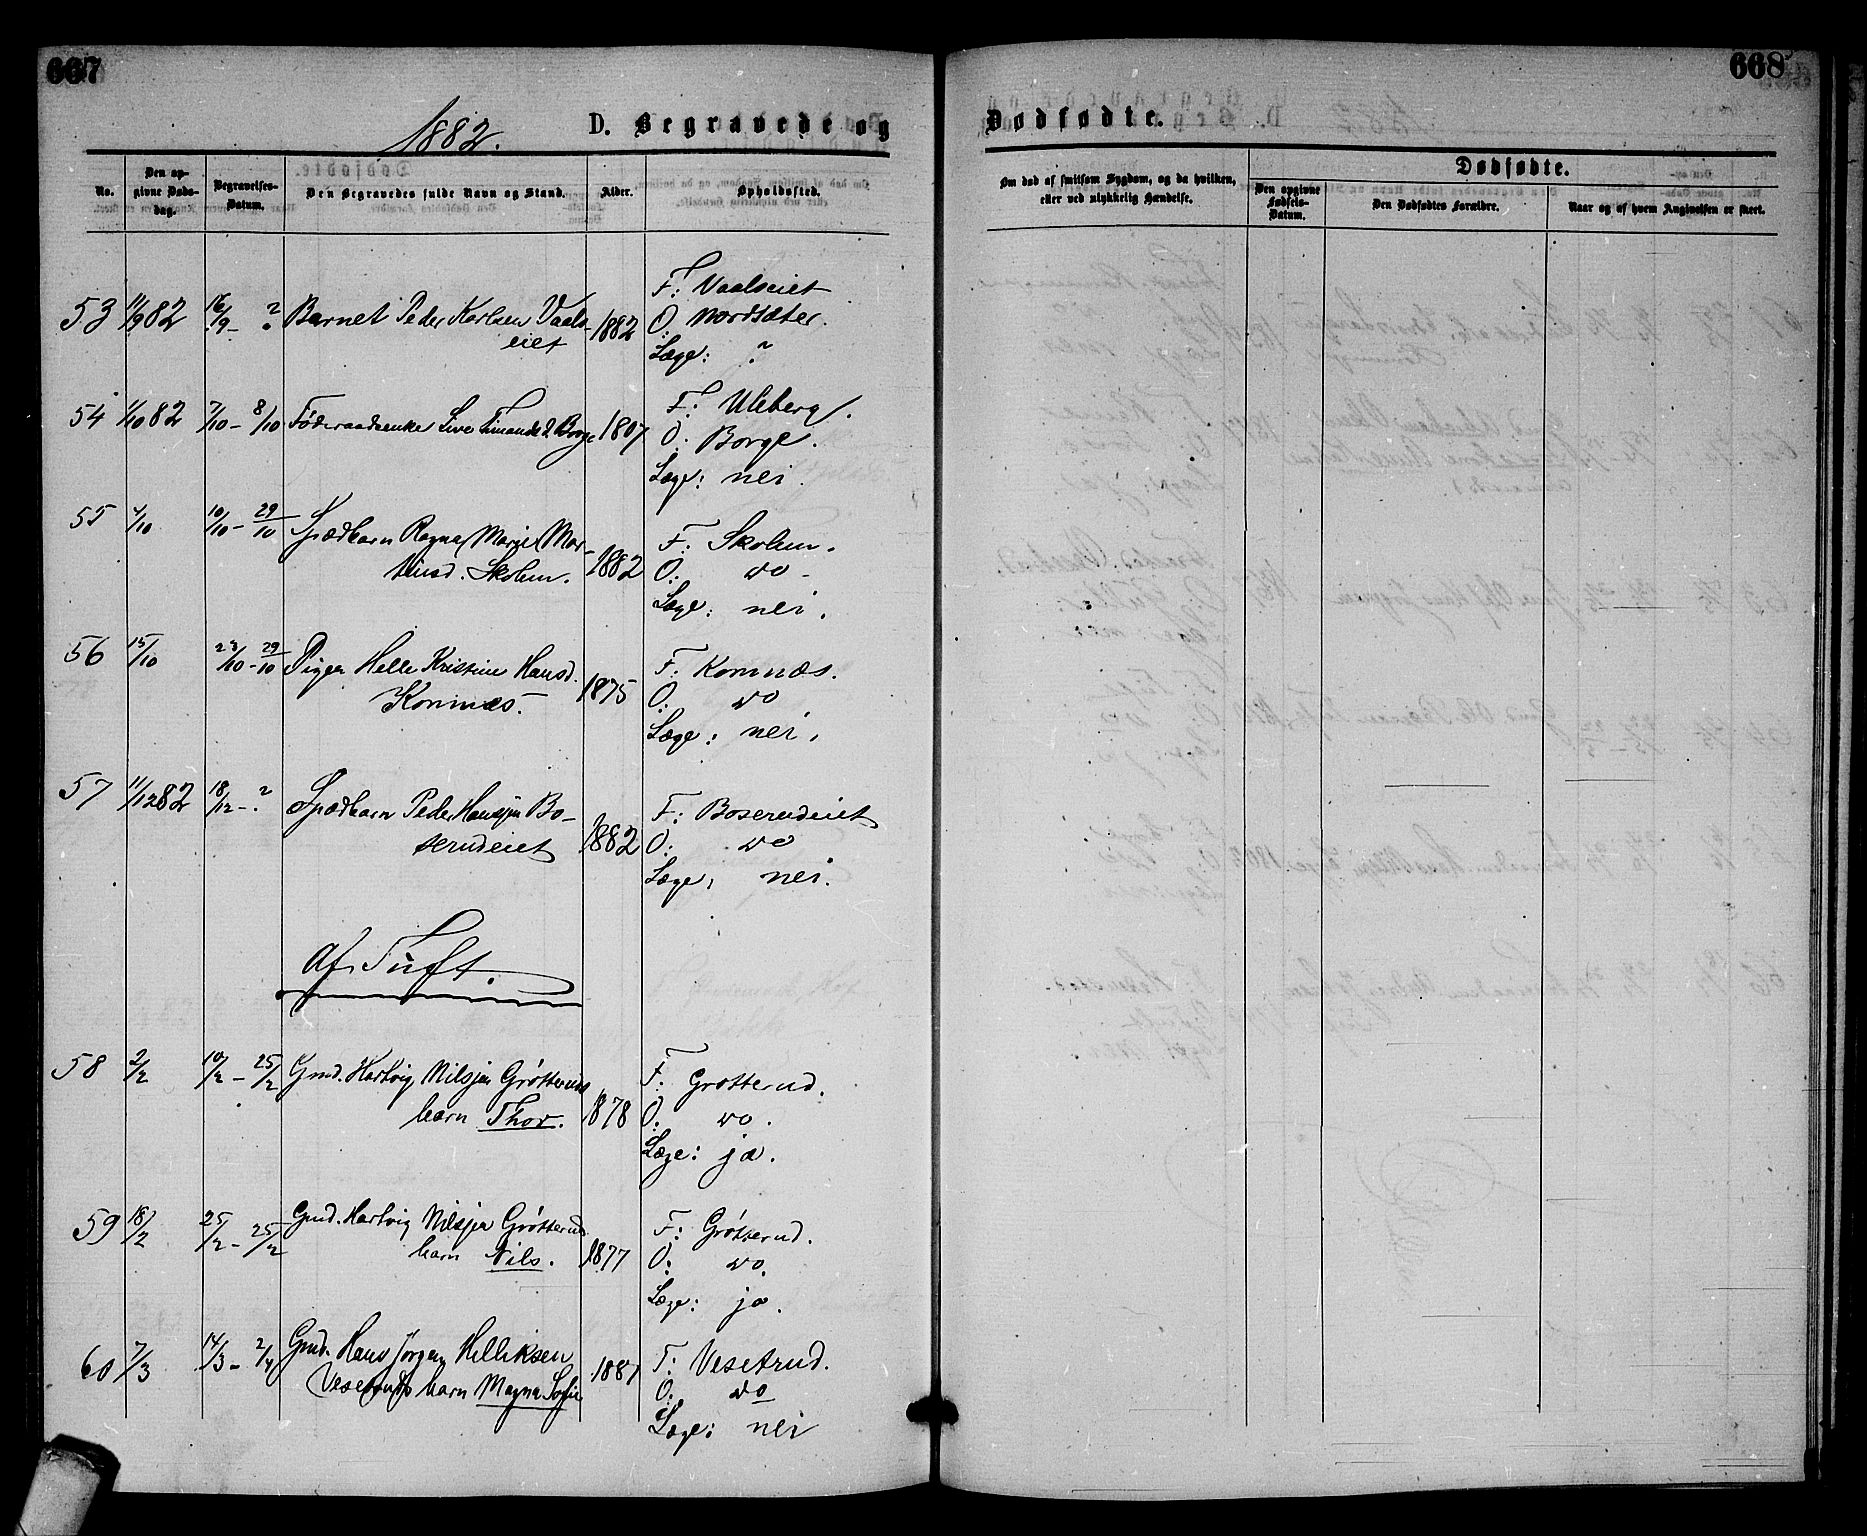 667
1882.
D. Begravede og
No.
Den op-
givne Døds-
dag.
Begravelses-
Datum.
Den Begravedes fulde Navn og Stand.
Alder.
Opholdssted.
53 11/9 82 16/9 - ? Barnet Peder Karlsen Vaals-
eiet
1882
F: Vaalseiet
O: Nordsæter.
Læge: ?
54 1/10 82 7/10 - 8/10 Føderaadsenke Live Simonsd. Borge 1807
F: Uleberg.
O: Borge.
Læge: nei.
55 4/10 10/10 - 29/10 Spædbarn Ragna Marie Mar-
tinsd. Skolem.
1882
F: Skolem.
O: do -
Læge: nei.
56 15/10 23/10 - 29/10 Pigen Helle Kristine Hansd.
Komnæs.
1875
F: Komnæs.
O: do
Læge: nei.
57 11/12 82 18/12 - ? Spædbarn Peder Hansen Bo-
serudeiet
1882
F: Boserudeiet
O: do
Læge: nei.
Af Tuft.
58 2/2 10/2 - 25/2 Gmd. Hartvig Nilsen Grøtteruds
barn Thor.
1878
F: Grøtterud.
O: do.
Læge: ja.
59 18/2 25/2 - 25/2 Gmd. Hartvig Nilsen Grøtteruds
barn Nils.
1877
F: Grøtterud.
O: do.
Læge: ja.
60 7/3 14/3 - 2/4 Gmd. Hans Jørgen Helliksen
Vesetruds barn Magna Sofie
1881
F: Vesetrud.
O: do
Læge: nei
668
Dødfødte.
Om død af smitsom Sygdom, og da hvilken,
eller ved ulykkelig Hændelse.
Dødfødte.
Den opgivne
Fødsels-
Datum.
Den Dødfødtes Forældre.
Naar og af hvem Angivelsen er skeet.